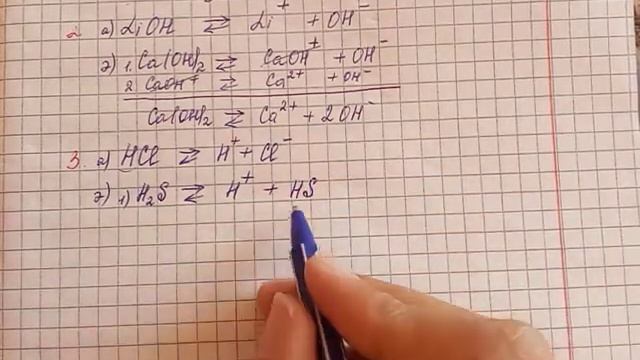 2. а) LiOH ⇄ Li⁺ + OH⁻
э) 1. Ca(OH)₂ ⇄ CaOH⁺ + OH⁻
2. CaOH⁺ ⇄ Ca²⁺ + OH⁻
Ca(OH)₂ ⇄ Ca²⁺ + 2OH⁻
3. а) HCl ⇄ H⁺ + Cl⁻
э) 1) H₂S ⇄ H⁺ + HS